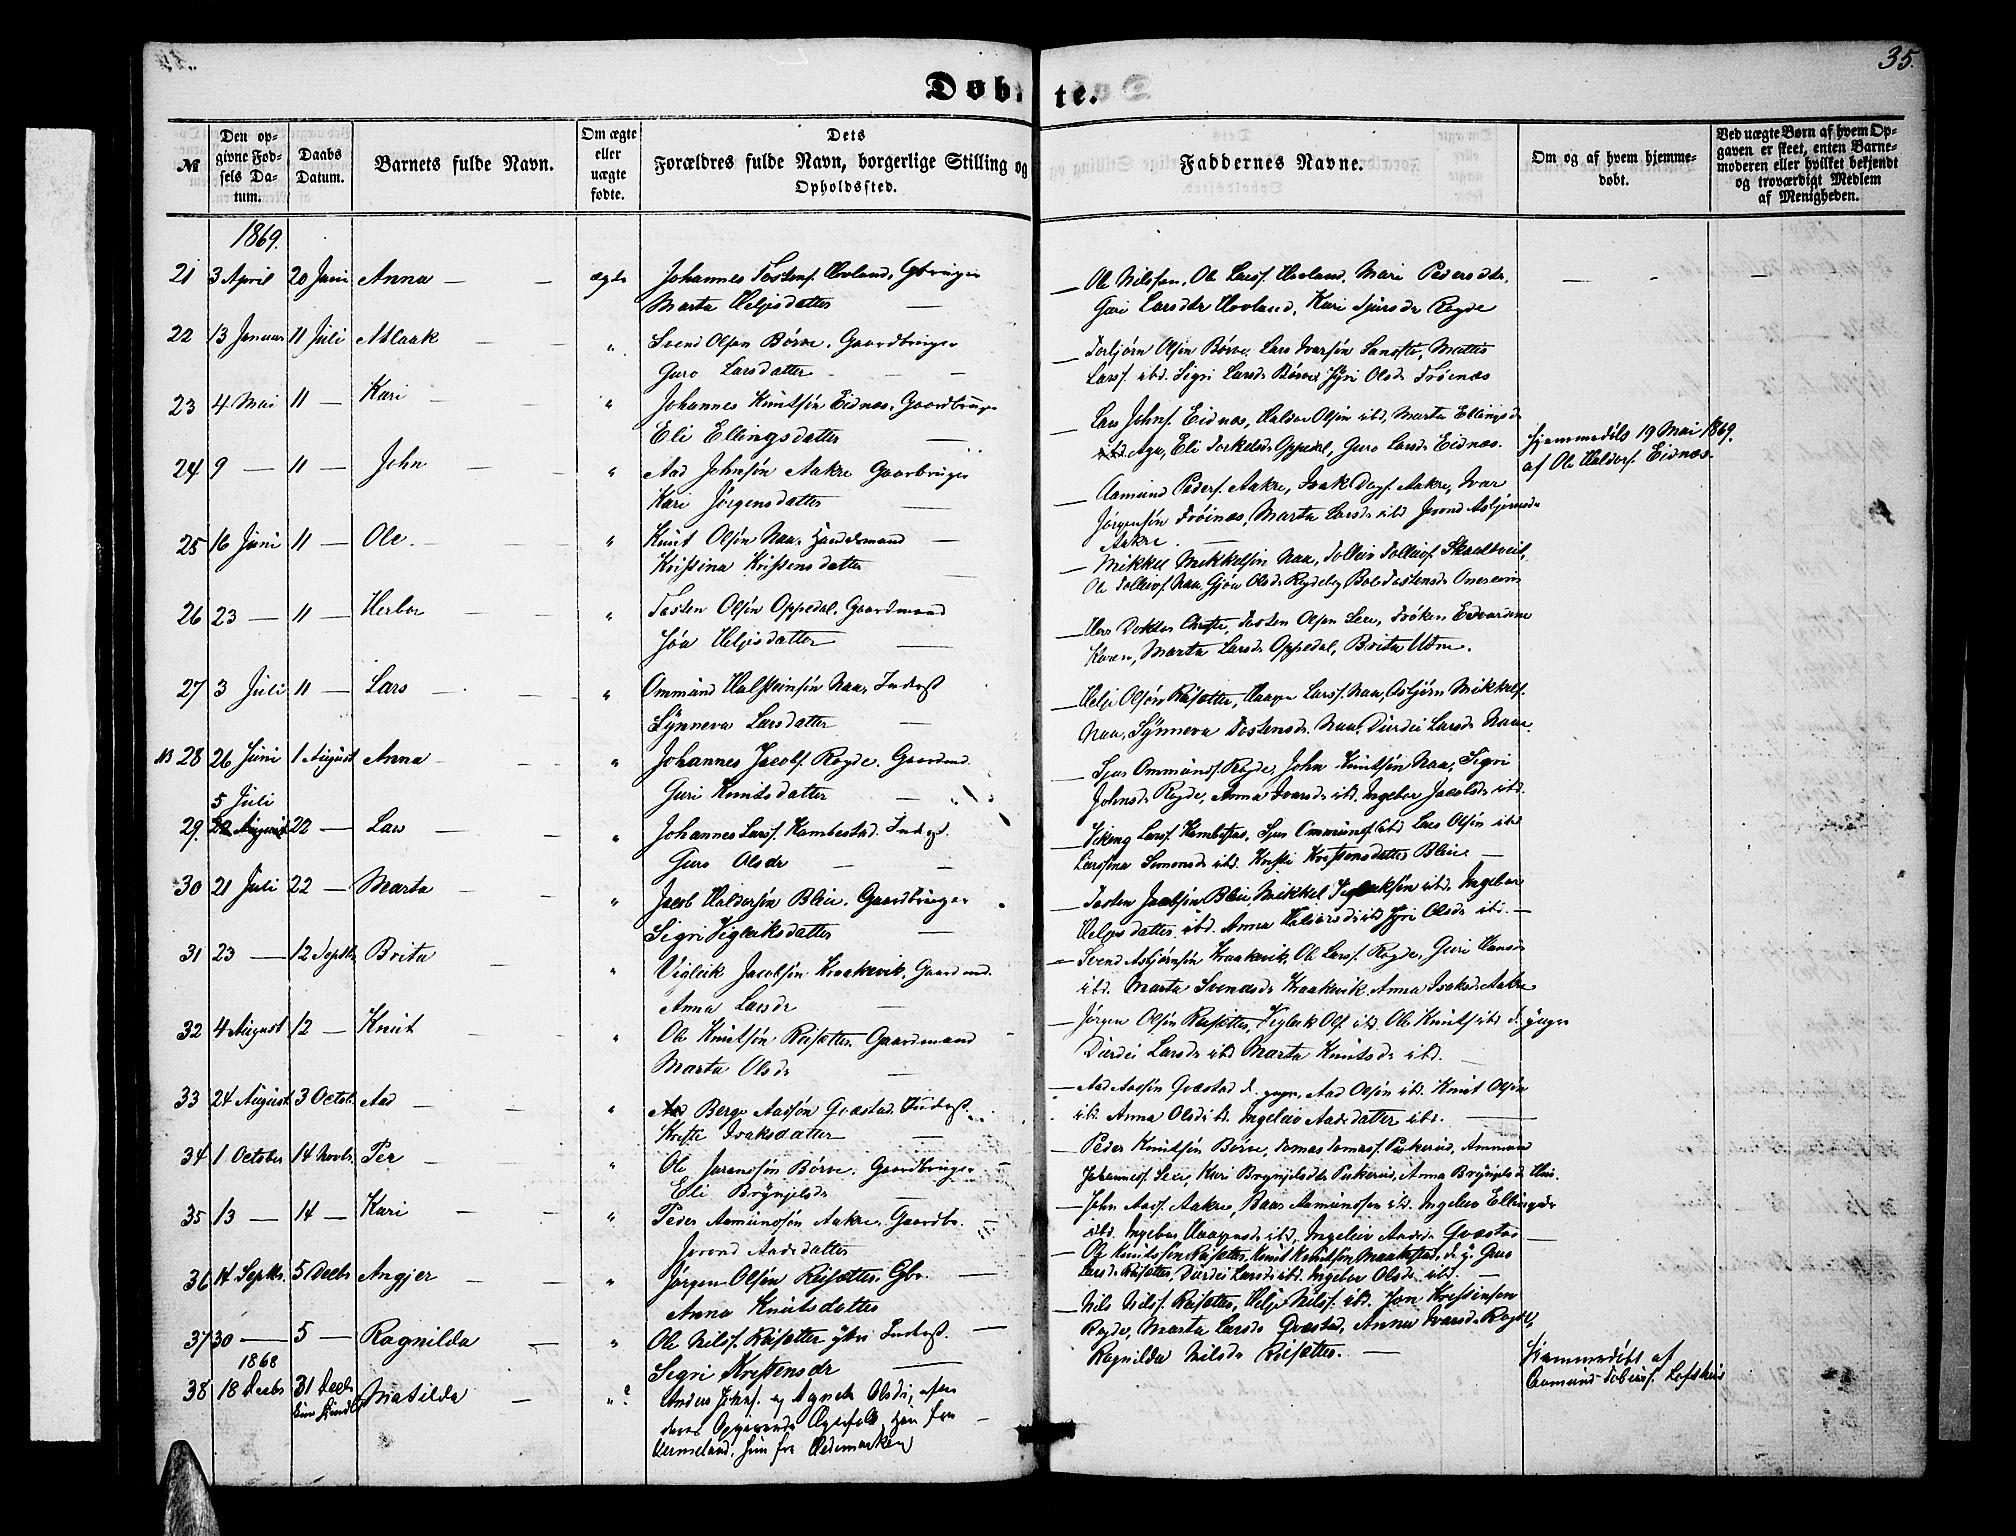 35.
Døbte.
№
Den opgivne Fødsels Datum.
Daabs Datum.
Barnets fulde Navn.
Om ægte eller uægte fødte.
Dets Forældres fulde Navn, borgerlige Stilling og Opholdssted.
Faddernes Navne.
Om og af hvem hjemmedøbt.
Ved uægte Børn af hvem Opgaven er skeet, enten Barnemoderen eller hvilket bekjendt og troværdigt Medlem af Menigheden.
1869.
21 3 April 20 Juni Anna — — ægte Johannes Tostens. Hovland, Gbruger
Marta Heljesdatter —
— Ole Nilssen, Ole Larss. Hovland, Mari Pedersdtr,
Guri Larsdtr Hovland, Kari Sjursdr Rogde
22 13 Januar 11 Juli Aslaak — — " Svend Olsen Børve, Gaardbruger
Guro Larsdatter — —
— Torbjørn Olsøn Børve, Lars Ivarsøn
Larss. ibd. Sigri Larsdr Børve, Olsdr Trøenæs
23 4 Mai 11 — Kari — " Johannes Knutsøn Eidnæs, Gaardbruger
Eli Ellingsdatter —
— Lars Johns. Eidnæs, Haldor Olsøn ibd, Marta Ellingsdr
Aga, Eli Torkelsdr Oppedal, Guro Larsdr Eidnæs.
Hjemmedøbt 19 Mai 1869.
af Ole Haldors. Eidnæs.
24 9 — 11 — John — — " Aad Johnsøn Aakre Gaarbruger
Kari Jørgensdatter —
— Aamund Peders. Aakre, Isak Dags. Aakre, Ivar
Jørgensøn Trøinæs, Marta Larsdr ibd Jorond Asbjørnsdr
Aakre —
25 16 Juni 11 — Ole. — — " Knut Olsøn Naa, Handelsmand —
Kristina Kristensdatter —
— Mikkel Mikkelsøn Naa, Tolleiv Tolleivs. Skaaltveit,
Ole Tolleivs. Naa, Gjøa Olsdr Rogdeberg
26 23 — 11 — Herbor — — " Tosten Olsøn Oppedal, Gaardmand
Jøa Heljesdatter —
— Herr Doktor Christie, Tosten Olsen Lee, Frøken Edvardine
Marta Larsdr Oppedal, Brita Utne.
27 3 Juli 11 — Lars — . — — " Ommund Halsteinsøn Naa, Inderst
Synneva Larsdatter —
— Helje Olsøn Reisætter, Haavar Larss. Naa, Asbjørn Mikkels.
Naa, Synneva Tostensdr. Naa, Durdei Larsdr Naa.
NB 28 26 Juni 1 August Anna — — — " Johannes Jacobs. Rogde. Gaardmd.
Guri Knutsdatter —
— Sjur Ommunds. Rogde, John Knutsøn Naa, Sigri
Johnsdr Rogde, Anna Ivarsdr ibd. Ingebor Jacobsdr ibd.
5 Juli
29. 22 August 22 — Lars — — " Johannes Larss. Kambestad. Inderst.
Guro Olsdr — —
— Viking Larss. Kambestad, Sjur Ommunds. ibd Lars Olsøn ibd
Larssina Simonsdr ibd. Kristi Kristensdatter Bleie —
30 21 Juli 22 — Marta — — " Jacob Haldorsøn Bleie. Gaardbruger
Sigri Vigleiksdatter —
— Tosten Jacobsøn Bleie, Mikkel Vigleiksøn ibd. Ingebor
Heljesdatter ibd. Anna Haldorsdr ibd Olsdr ibd. —
31 23 — 12 Septbr Brita — " Vigleik Jacobsøn Kraakevik, Gaardmd.
Anna Larsdr —
— Svend Asbjørnsøn Kraakevik, Ole Larss. Rogde, Guri Hansdr
ibd. Marta Svendsdr Kraakevik, Anna Isaksdr Aakre
32 4 August 12 — Knut — — " Ole Knutsøn Reisætter. Gaardmand
Marta Olsdr —
— Jørgen Olsøn Reisætter, Vigleik Ols. ibd. Ole Knuts ibd d. yngre
Durdei Larsdr ibd Marta Knutsdr ibd. —
33 24 August 3 Octob. Aad — — " Aad Berge Aadsøn Qvæstad. Inderst.
Kristi Isaksdatter —
— Aad Aadsøn Qvæstad d. yngre, Aad Olsøn ibd. Knut Olsøn
ibd. Anna Olsdr ibd, Ingeleiv Aadsdatter ibd. —
34 1 October 14 Novbr. Per — — " Ole Børve. Gaardbruger
Eli Brynjelsdr —
— Peder Knutsøn Børve, Tomas Tomass. Ammund
Johanness. Lee, Kari Brynjelsdtr Anna Brynjelsdr
35 13 — 14 — Kari — — " Peder Aamundsøn Aakre. Gaardbr. —
Jorond Aadsdatter
— John Aads. Aakre, Baar Aamundsen ibd. Ingeleiv Ellingsdr
ibd. Ingebor ibd, Ingeleiv Aadsdr Qvæstad —
36 14 Septbr. 5 Decbr Angjer — — " Jørgen Olsøn Reisætter. Gbr. —
Anna Knutsdatter
— Ole Knutssøn Reisætter, Knut Knutsøn Maakestad, d. y. Guro
Larsdr Reisætter, Durdei Larsdr ibd. Ingebor Olsdr ibd. —
37 30 — 5 — Ragnilda — " Ole Nilss. Reisætter ytre Inderst. —
Sigri Kristensdr —
— Nils Nilss. Reisætter, Helje Nilss. ibd. Jon Kristensen
Rogde, Marta Larsdr Qvæstad, Anna Ivarsdr Rogde,
Ragnilda Nilsdr Reisætter. —
1868
38 18 Decbr 31 Decbr Matilda — "? Anders Johns. og Agnete Olsdr, efter
deres Opgivende Ægtefolk, han fra —
Vermeland, hun fra Hedemarken
Hjemmedøbt af
Aamund Lofthus